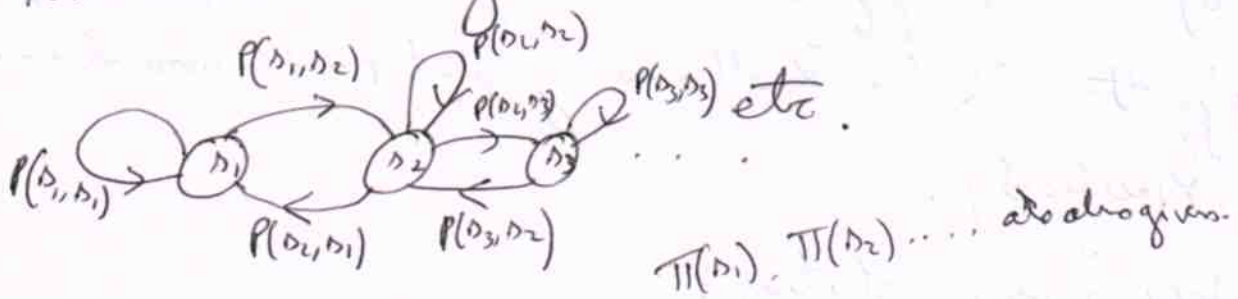 P(s₁,s₂)
P(s₂,s₂)
P(s₂,s₃)
P(s₃,s₃) etc.
P(s₁,s₁)
s₁
s₂
s₃
. . .
P(s₂,s₁)
P(s₃,s₂)
π(s₁), π(s₂) .... are also given.